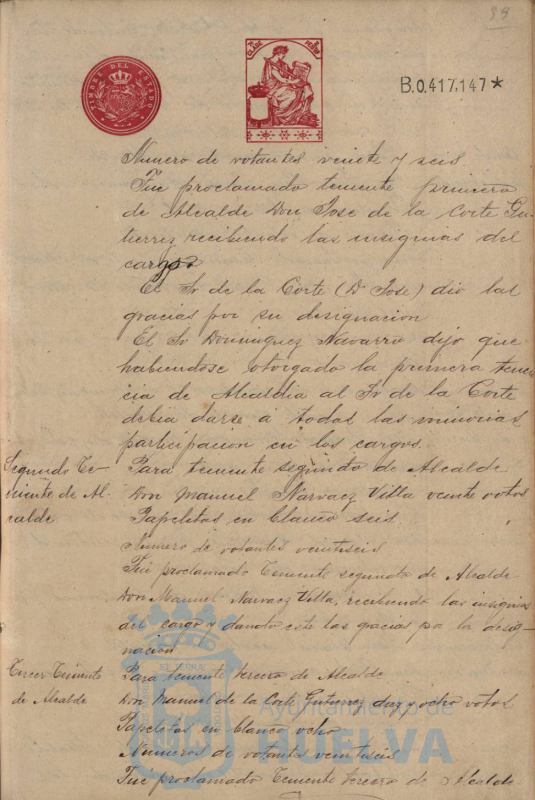 99
TIMBRE DEL ESTADO
CLASE
B.0.417,147*
Numero de votantes veinte y seis
Fue proclamado teniente primero
de Alcalde Don Jose de la Corte Gu-
tierrez, recibiendo las insignias del
cargo
El Sr de la Corte (D Jose) dio las
gracias por su designacion
El Sr Dominguez Navarro dijo que
habiendose otorgado la primera tenen
cia de Alcaldia al Sr de la Corte
debia darse á todas las minorias
participacion en los cargos.
Segundo Te-
niente de Al-
calde
Para teniente segundo de Alcalde
Don Manuel Narvaez Villa veinte votos
Papeletas en blanco seis.
Numero de votantes veintiseis
Fue proclamado Teniente segundo de Alcalde
Don Manuel Narvaez Villa, recibiendo las insignias
del cargo y dando este las gracias por la desig-
nacion
Tercer Teniente
de Alcalde
Para teniente tercero de Alcalde
Don Manuel de la Corte Gutierrez diez y ocho votos
Papeletas en blanco ocho
Numeros de votantes veintiseis
Fue proclamado Teniente tercero de Alcalde
Ayuntamiento de
HUELVA